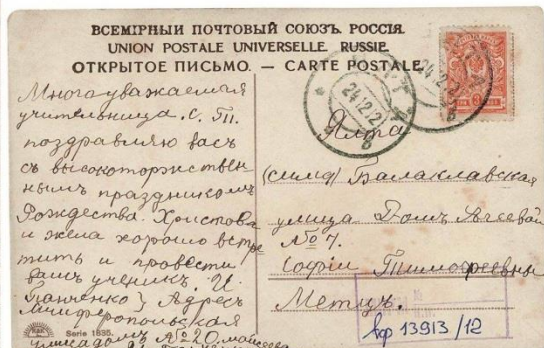 ВСЕМІРНЫЙ ПОЧТОВЫЙ СОЮЗЪ. РОССІЯ.
UNION POSTALE UNIVERSELLE. RUSSIE.
ОТКРЫТОЕ ПИСЬМО. — CARTE POSTALE.
Многауважаемыя
учительница. С. Т.
поздравляю васъ
съ высокоторжествен-
нымъ праздникомъ
Рождества. Христова
и жела хорошо встре
тить и провести
вашъ ученик. И.
Панченко Адресъ
Симферопольская
улица домъ №20
Serie 1835.
24.12.12
24.12.12
Ялта
(симф) Балаклавская
улица Домъ
№ 7.
Софіи Тимофеевны
Метцъ.
вф 13913/12